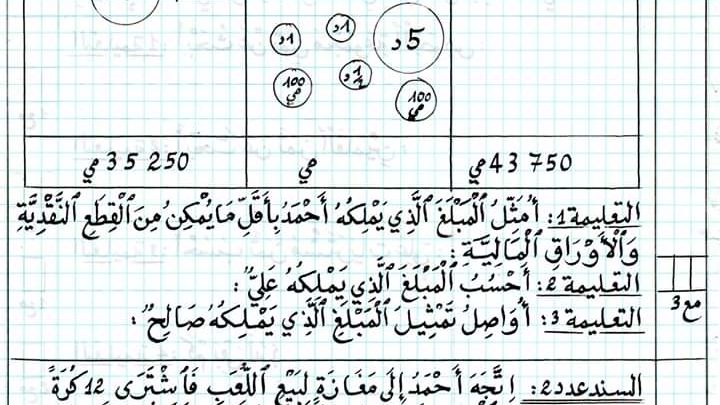 1د
1د
5د
100 مي
1/2 د
100 مي
43 750 مي
مي
35 250 مي
التعليمة 1: أُمَثِّلُ ٱلْمَبْلَغَ ٱلَّذِي يَمْلِكُهُ أَحْمَدُ بِأَقَلِّ مَا يُمْكِنُ مِنَ ٱلْقِطَعِ ٱلنَّقْدِيَّةِ
وَٱلْأَوْرَاقِ ٱلْمَالِيَّةِ:
التعليمة 2: أَحْسُبُ ٱلْمَبْلَغَ ٱلَّذِي يَمْلِكُهُ عَلِيٌّ:
التعليمة 3: أُوَاصِلُ تَمْثِيلَ ٱلْمَبْلَغِ ٱلَّذِي يَمْلِكُهُ صَالِحٌ:
مع3
السند عدد2: اِتَّجَهَ أَحْمَدُ إِلَى مَغَازَةٍ لِبَيْعِ ٱللُّعَبِ فَٱشْتَرَى 12 كُرَةً